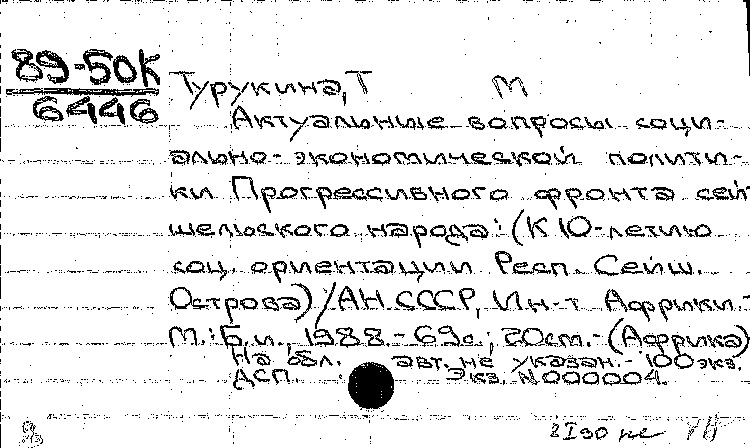 89-50К
6446
Турукина, Т М
Актуальные вопросы соци-
ально-экономической полити-
ки Прогрессивного фронта сей
шельского народа: (К 10-летию
соц. ориентации Респ. Сейш.
Острова) / АН СССР, Ин-т Африки.-
М.: Б.и., 1988.-69с.; 20см.-(Африка)
На обл. авт. не указан.-100экз.
ДСП. Экз. №000004.
2 I 90